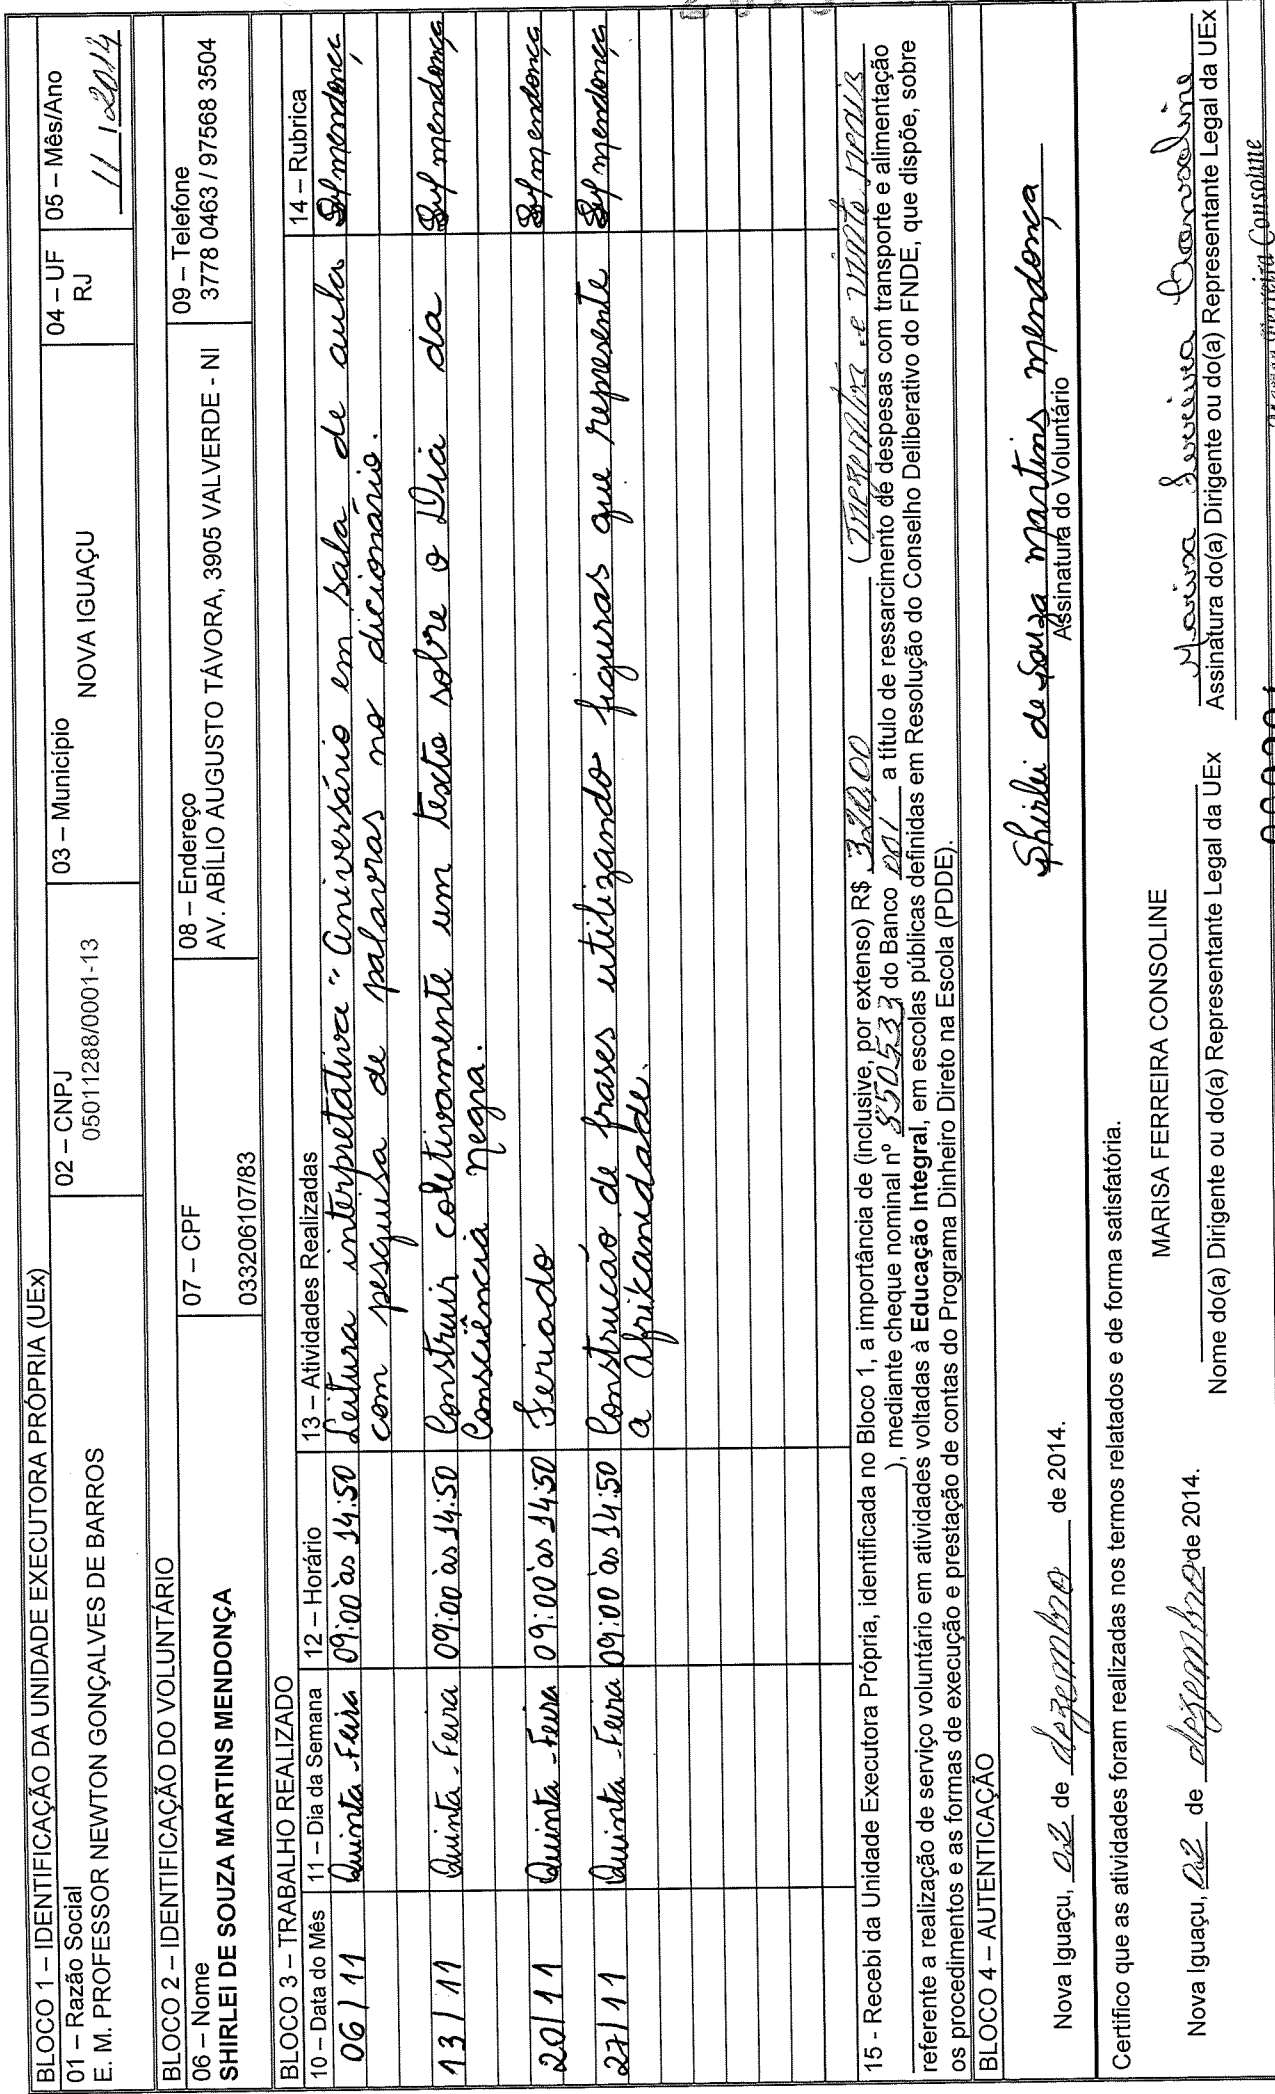 BLOCO 1 – IDENTIFICAÇÃO DA UNIDADE EXECUTORA PRÓPRIA (UEx)
01 – Razão Social
E. M. PROFESSOR NEWTON GONÇALVES DE BARROS
02 – CNPJ
05011288/0001-13
03 – Município
NOVA IGUAÇU
04 – UF
RJ
05 – Mês/Ano
11 / 2014
BLOCO 2 – IDENTIFICAÇÃO DO VOLUNTÁRIO
06 – Nome
SHIRLEI DE SOUZA MARTINS MENDONÇA
07 – CPF
033206107/83
08 – Endereço
AV. ABÍLIO AUGUSTO TÁVORA, 3905 VALVERDE - NI
09 – Telefone
3778 0463 / 97568 3504
BLOCO 3 – TRABALHO REALIZADO
10 – Data do Mês 11 – Dia da Semana 12 – Horário 13 – Atividades Realizadas 14 – Rubrica
06/11 Quinta-Feira 09:00 às 14:50 Leitura interpretativa "Aniversário em sala de aula Mendonça
com pesquisa de palavras no dicionário.
13/11 Quinta-Feira 09:00 às 14:50 Construir coletivamente um texto sobre o Dia da Mendonça
Consciência negra.
20/11 Quinta-Feira 09:00 às 14:50 Feriado Mendonça
27/11 Quinta-Feira 09:00 às 14:50 Construcão de frases utilizando figuras que represente Mendonça
a Afrikanidade.
15 - Recebi da Unidade Executora Própria, identificada no Bloco 1, a importância de (inclusive, por extenso) R$ 320,00 (trezentos e vinte reais
), mediante cheque nominal nº 850533 do Banco 001 a título de ressarcimento de despesas com transporte e alimentação
referente a realização de serviço voluntário em atividades voltadas à Educação Integral, em escolas públicas definidas em Resolução do Conselho Deliberativo do FNDE, que dispõe, sobre
os procedimentos e as formas de execução e prestação de contas do Programa Dinheiro Direto na Escola (PDDE).
BLOCO 4 – AUTENTICAÇÃO
Nova Iguaçu, 02 de dezembro de 2014.
Shirlei de Souza Martins Mendonça
Assinatura do Voluntário
Certifico que as atividades foram realizadas nos termos relatados e de forma satisfatória.
MARISA FERREIRA CONSOLINE
Nova Iguaçu, 02 de dezembro de 2014.
Marisa Ferreira Consoline
Nome do(a) Dirigente ou do(a) Representante Legal da UEx
Assinatura do(a) Dirigente ou do(a) Representante Legal da UEx
Consoline